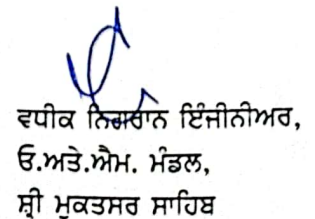 ਵਧੀਕ ਨਿਗਰਾਨ ਇੰਜੀਨੀਅਰ,
ਓ.ਅਤੇ.ਐਮ. ਮੰਡਲ,
ਸ਼੍ਰੀ ਮੁਕਤਸਰ ਸਾਹਿਬ